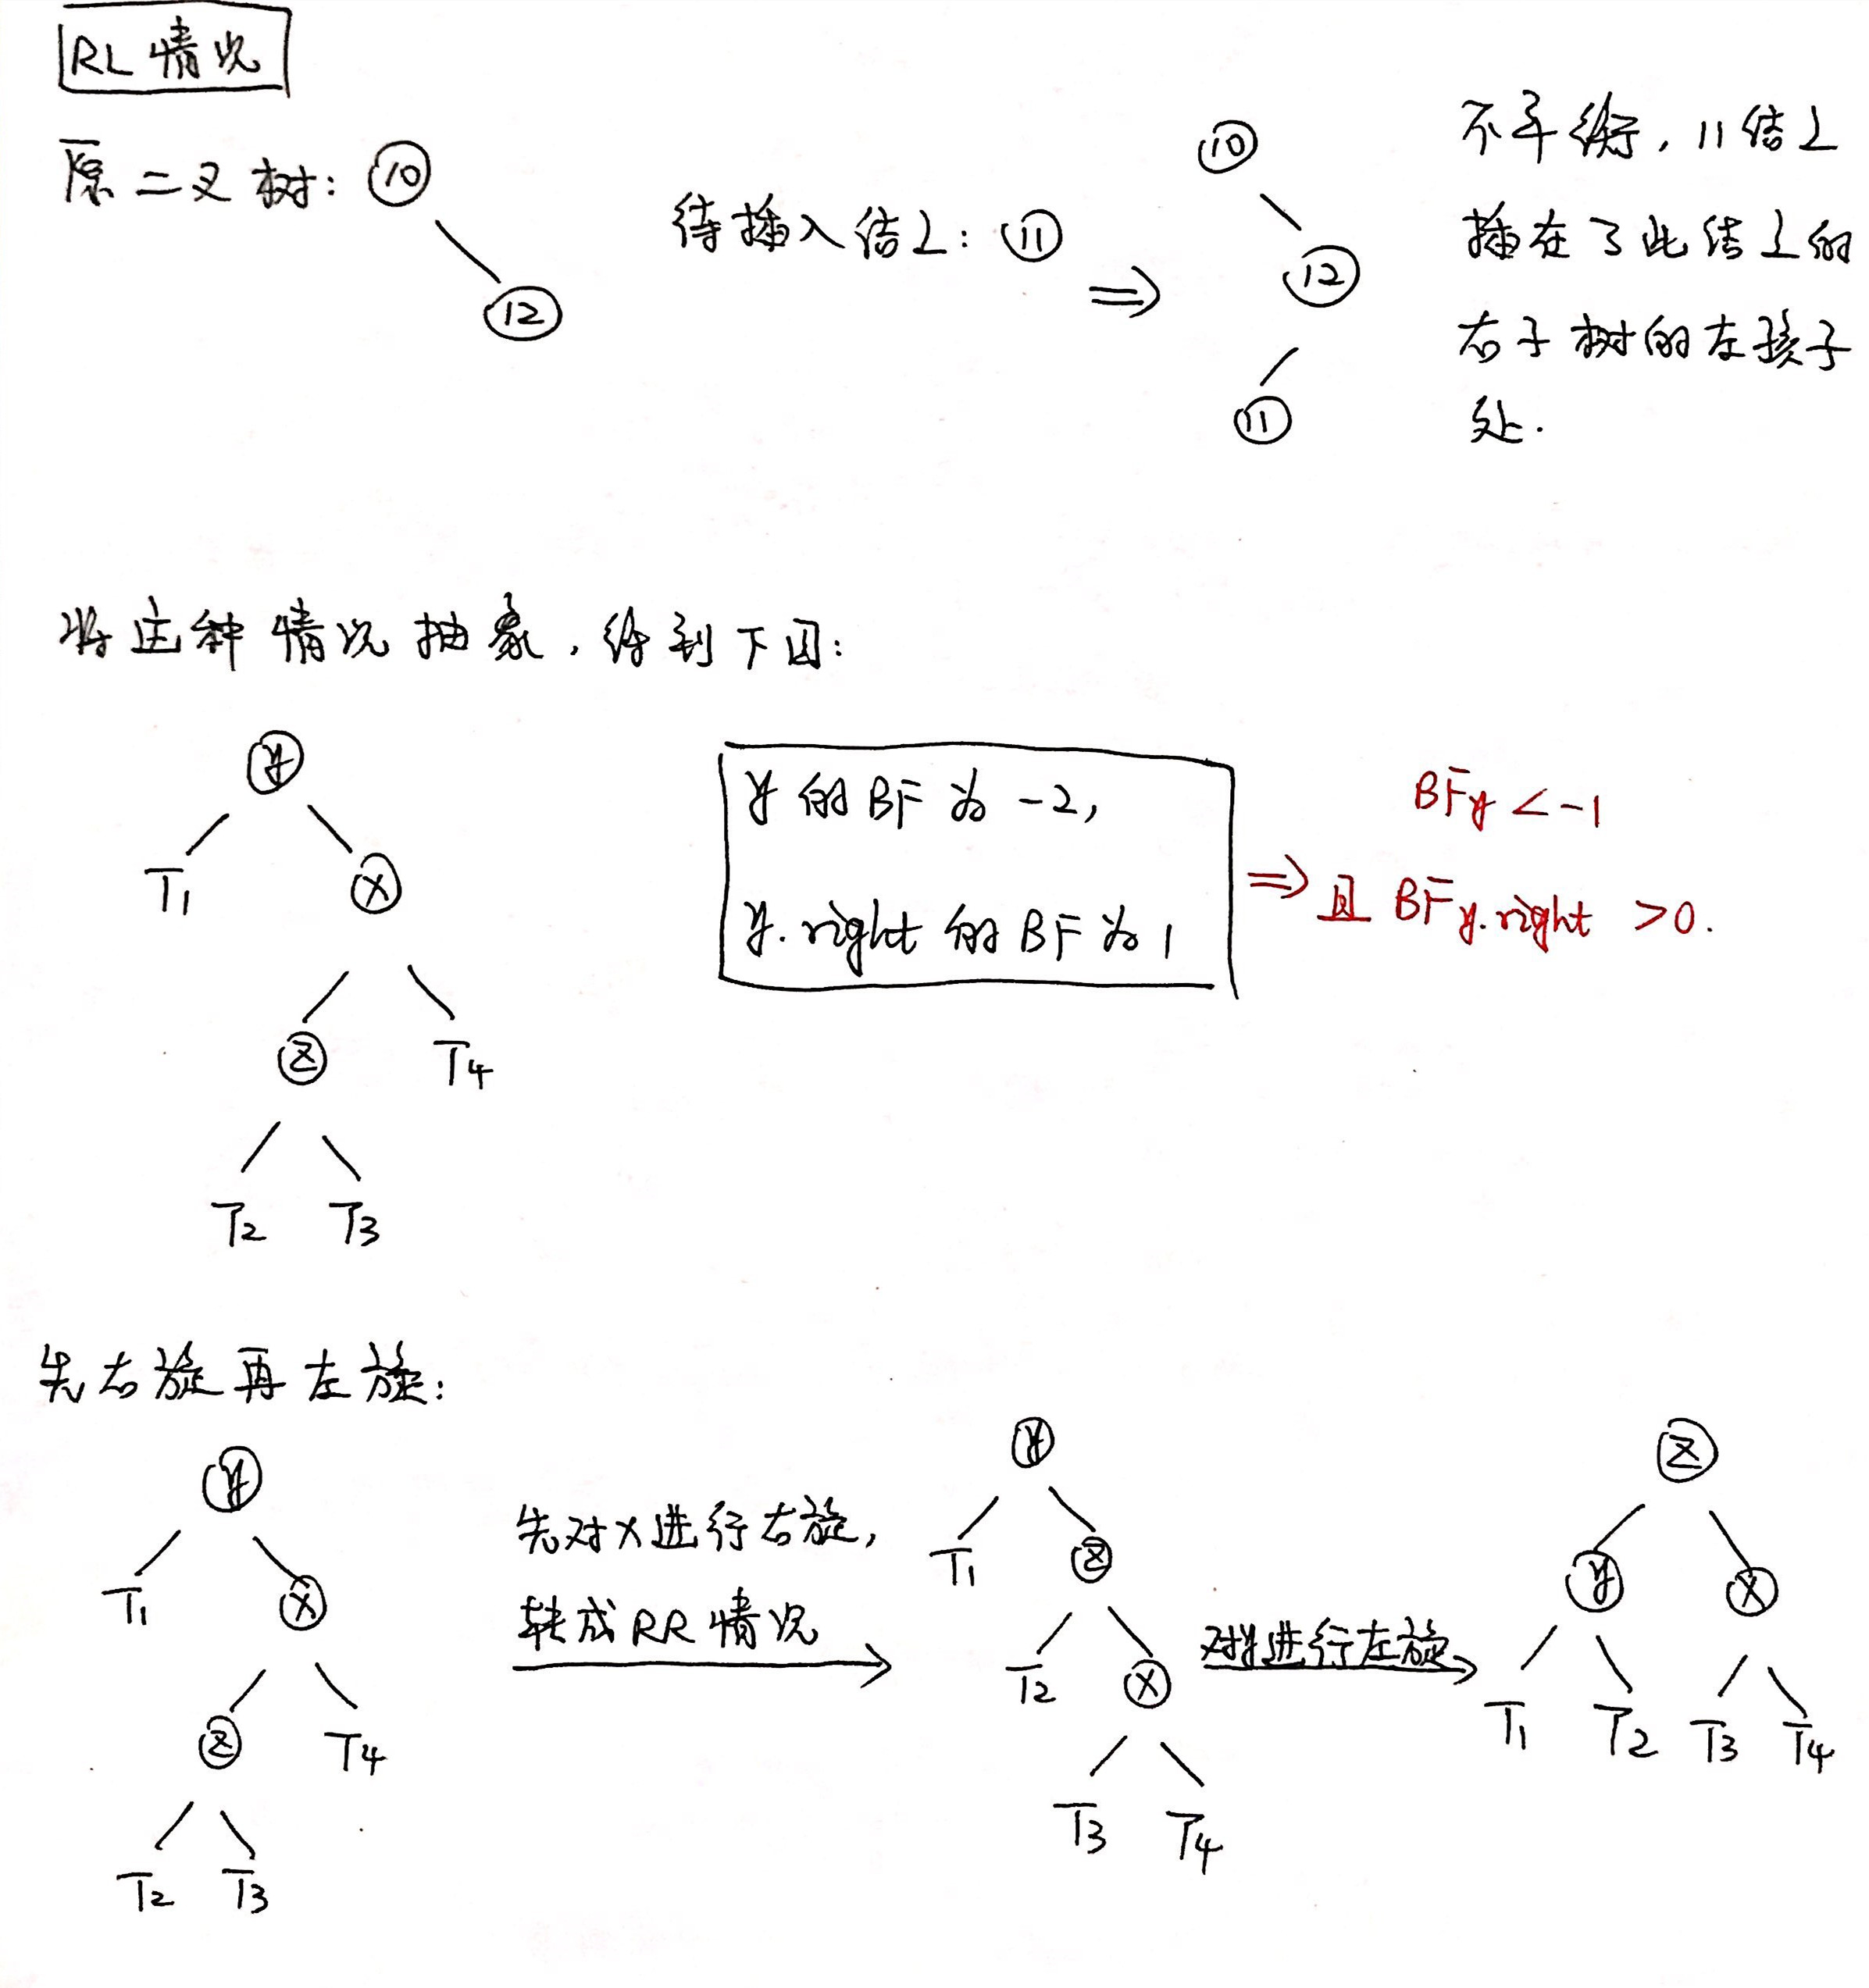 RL 情况
原二叉树: 10
12
待插入结点: 11
⇒
10
12
11
不平衡, 11结点
插在了此结点的
右子树的左孩子
处.
将这种情况抽象, 得到下图:
y
T1
x
z
T4
T2
T3
y 的 BF 为 -2,
y.right 的 BF 为 1
⇒
BFy < -1
且 BFy.right >0.
先右旋再左旋:
y
T1
x
z
T4
T2
T3
先对x进行右旋,
转成RR情况
y
T1
z
T2
x
T3
T4
对y进行左旋
z
y
x
T1
T2
T3
T4